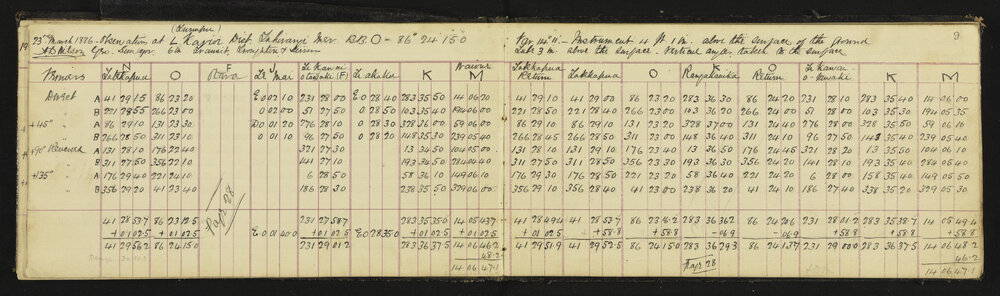 19 23rd March 1886 - Observations at L Karioi Dist. Tahvanji Mer. B.B. O = 86° 24 15.0
Var 14° 11' - Instrument 4 ft. 1 in. above the surface of the ground 9
6in transit, Troughton & Simms
Lake 3 in. above the surface. Vertical angles taken to the surface.
N O F J K M
Verniers Lakkapua O Rava Mai Te Kawai Te akalul K M Lakkapua Return Lakkapua O K Rangakanika O Return O Te Kawai K M
Direct A 41 29 15 86 23 20 E 0 02 10 231 28 00 E 0 28 40 283 35 50 14 06 20 41 29 10 41 29 00 86 23 20 283 36 30 86 24 20 231 28 10 283 35 40 14 06 00
B 221 28 55 266 23 00 0 02 00 51 27 50 0 28 50 103 35 40 194 06 00 221 28 50 221 28 40 266 23 00 103 36 20 266 24 00 51 28 00 103 35 30 194 05 35
+45° " A 86 29 10 131 23 30 D0 01 20 276 28 10 0 28 30 328 36 00 59 06 00 86 29 10 86 29 10 131 23 20 328 37 00 131 24 40 276 28 00 328 35 50 59 06 10
B 266 28 50 311 23 10 0 01 10 96 27 50 0 28 20 148 35 30 239 05 40 266 28 45 266 28 50 311 23 00 148 36 40 311 24 10 96 27 50 148 35 40 239 05 40
+90° Reversed A 131 28 10 176 22 40 321 27 30 13 34 50 104 05 00 131 28 10 131 29 10 176 23 40 13 36 50 176 24 45 321 28 20 13 35 50 104 06 10
B 311 27 50 356 22 10 141 27 10 193 34 50 284 04 40 311 27 50 311 28 50 356 23 30 193 36 30 356 24 20 141 28 10 193 35 40 284 05 40
+135° " A 176 29 40 221 24 10 6 28 50 58 36 10 149 06 10 176 29 30 176 28 50 221 23 20 58 36 20 221 24 20 6 28 00 158 35 40 149 05 50
B 356 29 20 41 23 40 186 28 30 238 35 50 329 06 00 356 29 10 356 28 40 41 23 00 238 36 20 41 24 10 186 27 40 338 35 20 329 05 30
Pap 28
41 28 53.7 86 23 12.5 231 27 58.7 283 35 35.0 14 05 43.7 41 28 49.4 41 28 53.7 86 23 16.2 283 36 36.2 86 24 20.6 231 28 01.2 283 35 38.7 14 05 49.4
+01 02.5 +01 02.5 E 0 01 40.0 +01 02.5 E 0 28 35.0 +01 02.5 +01 02.5 +01 02.5 +58.8 +58.8 -06.9 -06.9 +58.8 +58.8 +58.8
41 29 56.2 86 24 15.0 231 29 01.2 283 36 37.5 14 06 46.2 41 29 51.9 41 29 52.5 86 24 15.0 283 36 29.3 86 24 13.7 231 29 00.0 283 36 37.5 14 06 48.2
48.2 Pap 28 46.2
14 06 47.1 14 06 47.1